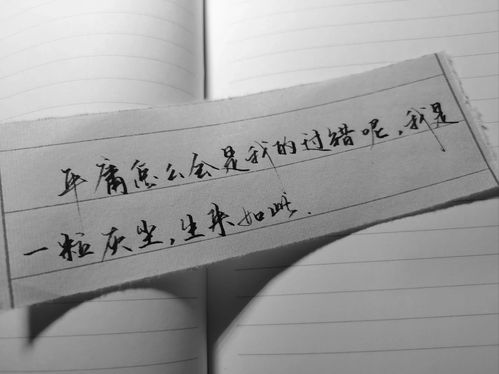 平庸怎么会是我的过错呢,我是
一粒灰尘,生来如此.